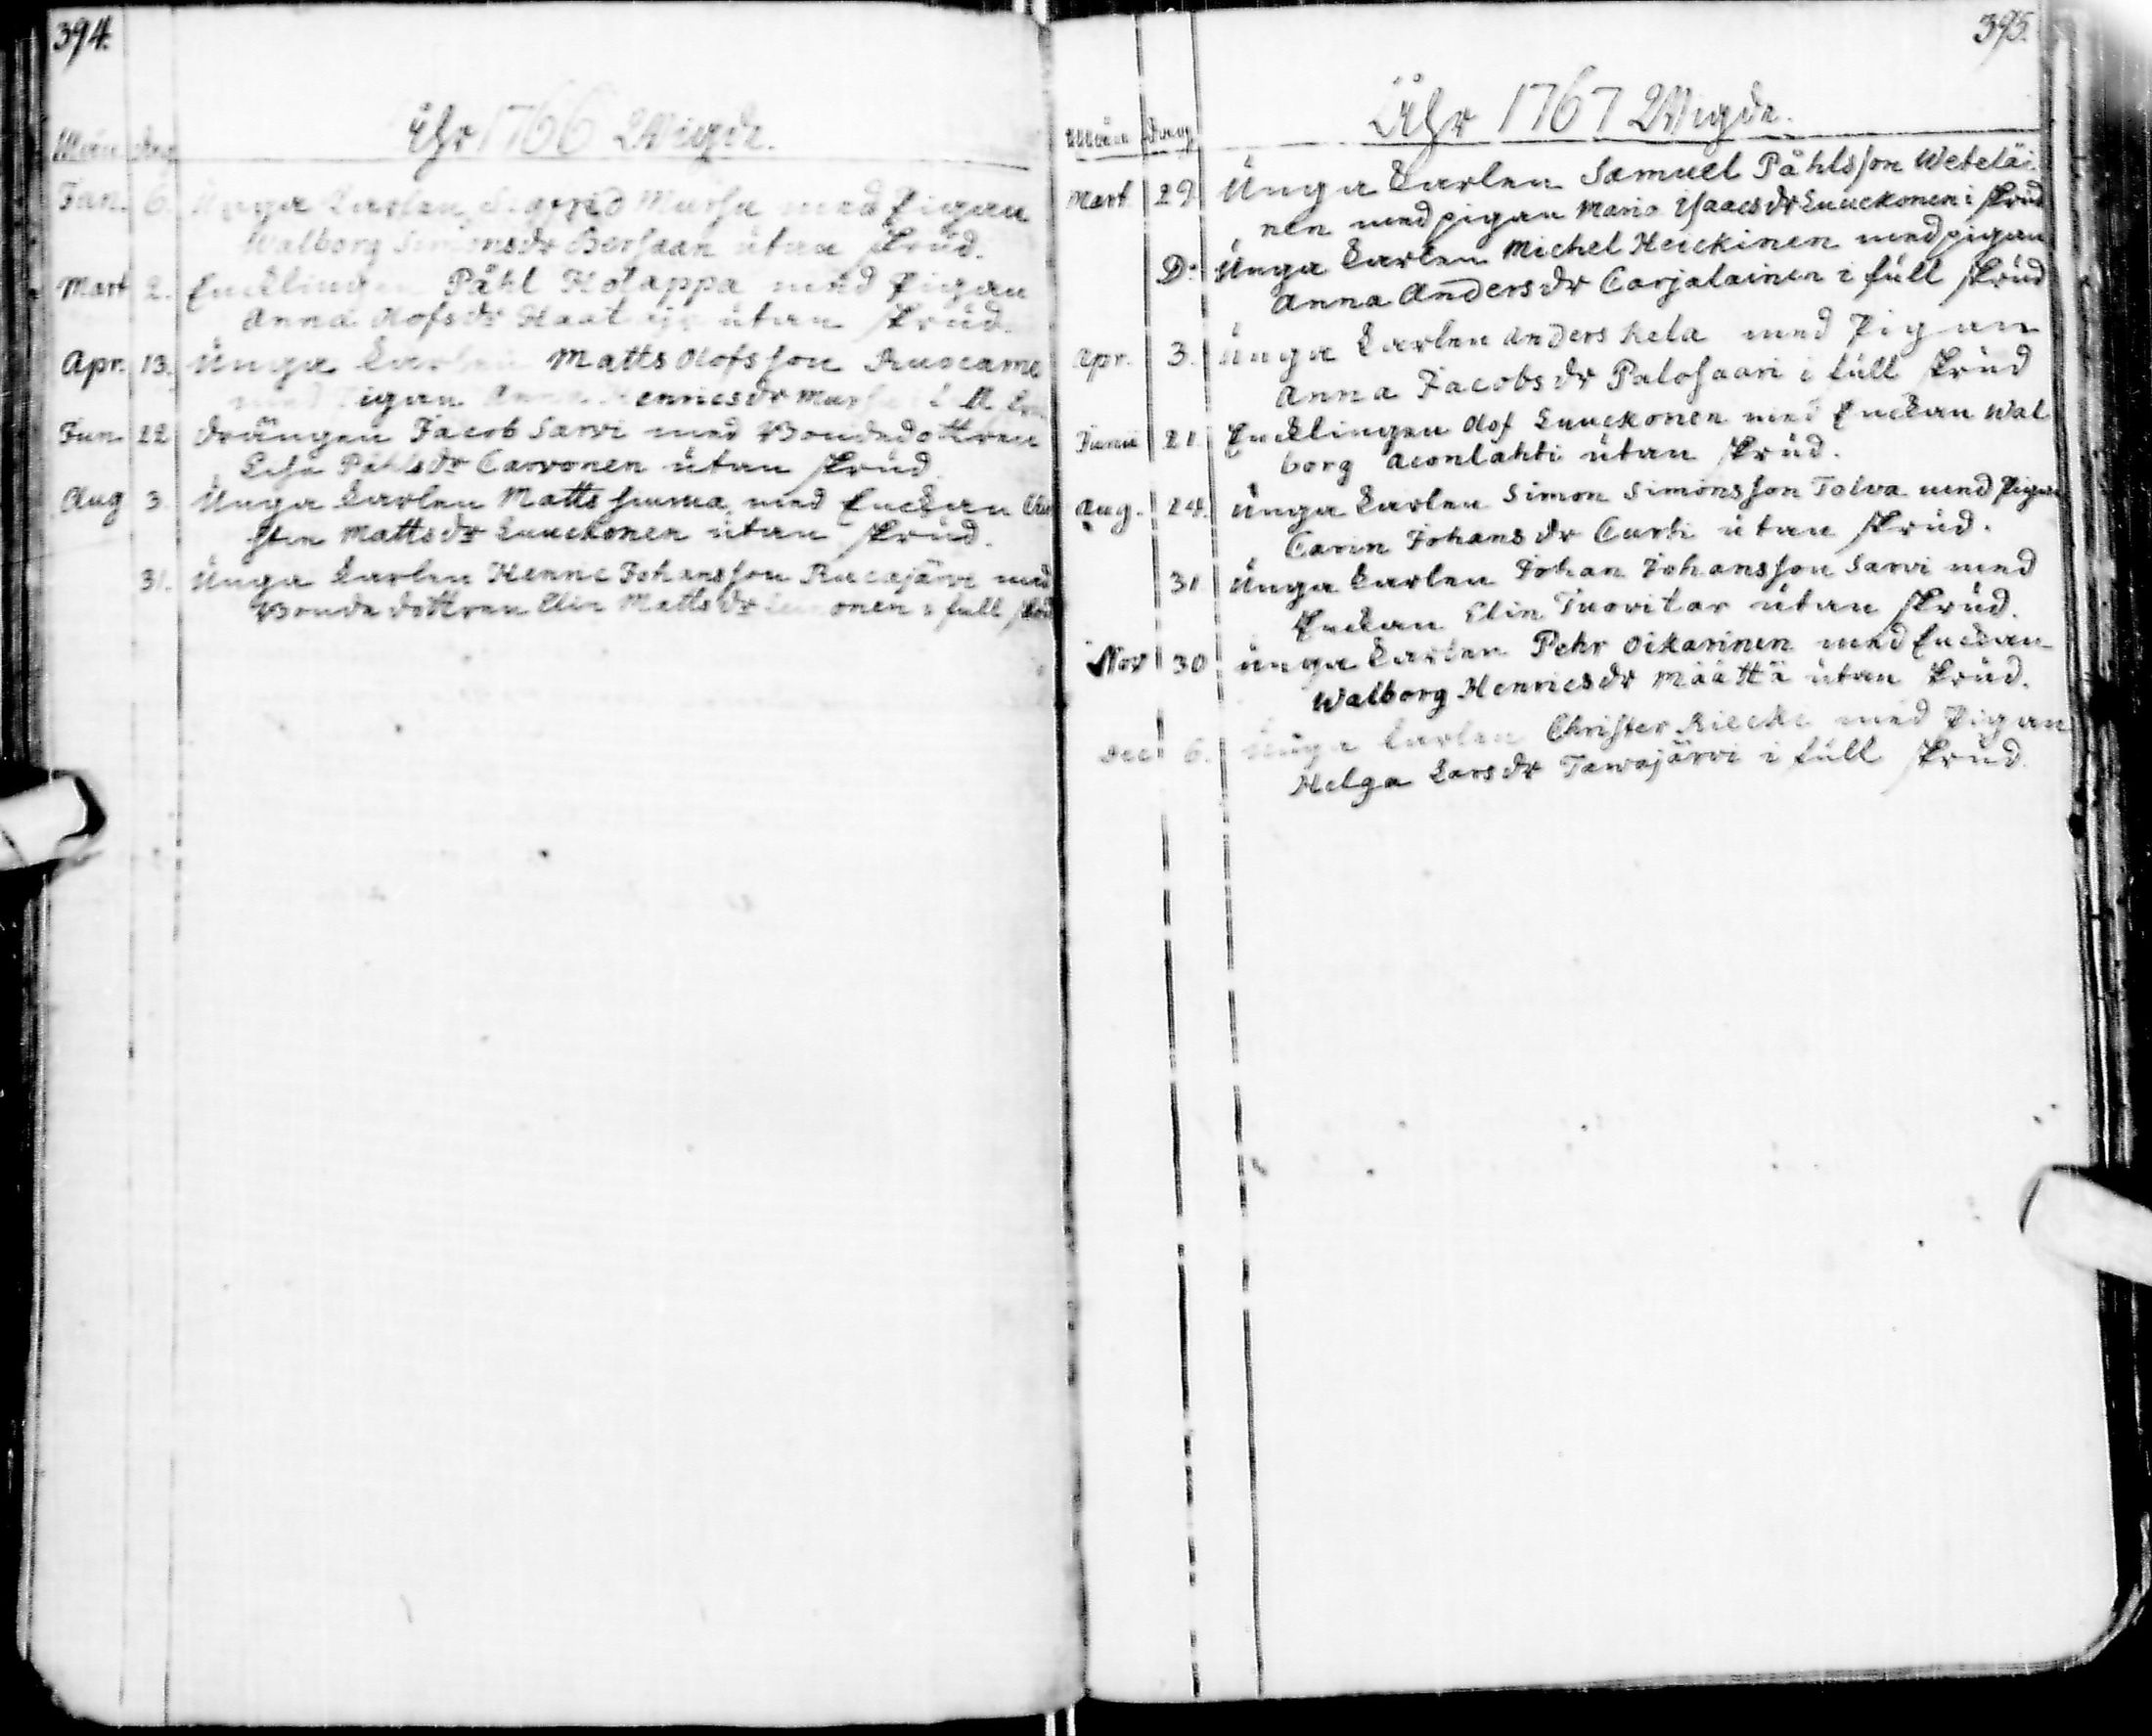 394.
Åhr 1766 Wigde.
Mån Dag
Jan. 6. Unga Karlen Sigfrid Mursu med Pigan
Walborg Simonsdr Hersaan utan skrud.
Mart 2. Encklingen Påhl Holappa med Pigan
Anna Olofsdr utan skrud.
Apr. 13. Unga Karlen Matts Olofsson Ruocame
med Pigan Anna Henricsdr
Jun 22 Drängen Jacob Sarvi med Bondedottren
Lisa Påhlsdr Carvonen utan skrud.
Aug 3. Unga Karlen Matts med Enckan
stin Mattsdr Luuckonen utan skrud.
31. Unga Karlen Henric Johansson Rucajärvi med
Bonde dottren Elin Mattsdr i full skrud
395.
Åhr 1767 Wigde.
Mån Dag
Mart 29 Unga Karlen Samuel Påhlsson Weteläi
nen med pigan Maria Isaacsdr Luuckonen i skrud
Do Unga Karlen Michel Heickinen med pigan
Anna Andersdr Carjalainen i full skrud
Apr. 3. Unga Karlen Anders Kela med Pigan
Anna Jacobsdr Palosaari i full skrud
Junii 21. Encklingen Olof Luuckonen med Enckan Wal
borg Aconlahti utan skrud.
Aug. 24. Unga Karlen Simon Simonsson Tolva med Pigan
Carin Johansdr Curti utan skrud.
31 Unga Karlen Johan Johansson Sarvi med
Enckan Elin Tuovitar utan skrud.
Nov 30 Unga Karlen Pehr Oikarinen med Enckan
Walborg Henricsdr Määttä utan skrud.
Dec 6. Unga Karlen Christer Riecki med Pigan
Helga Larsdr Tawajärvi i full skrud.